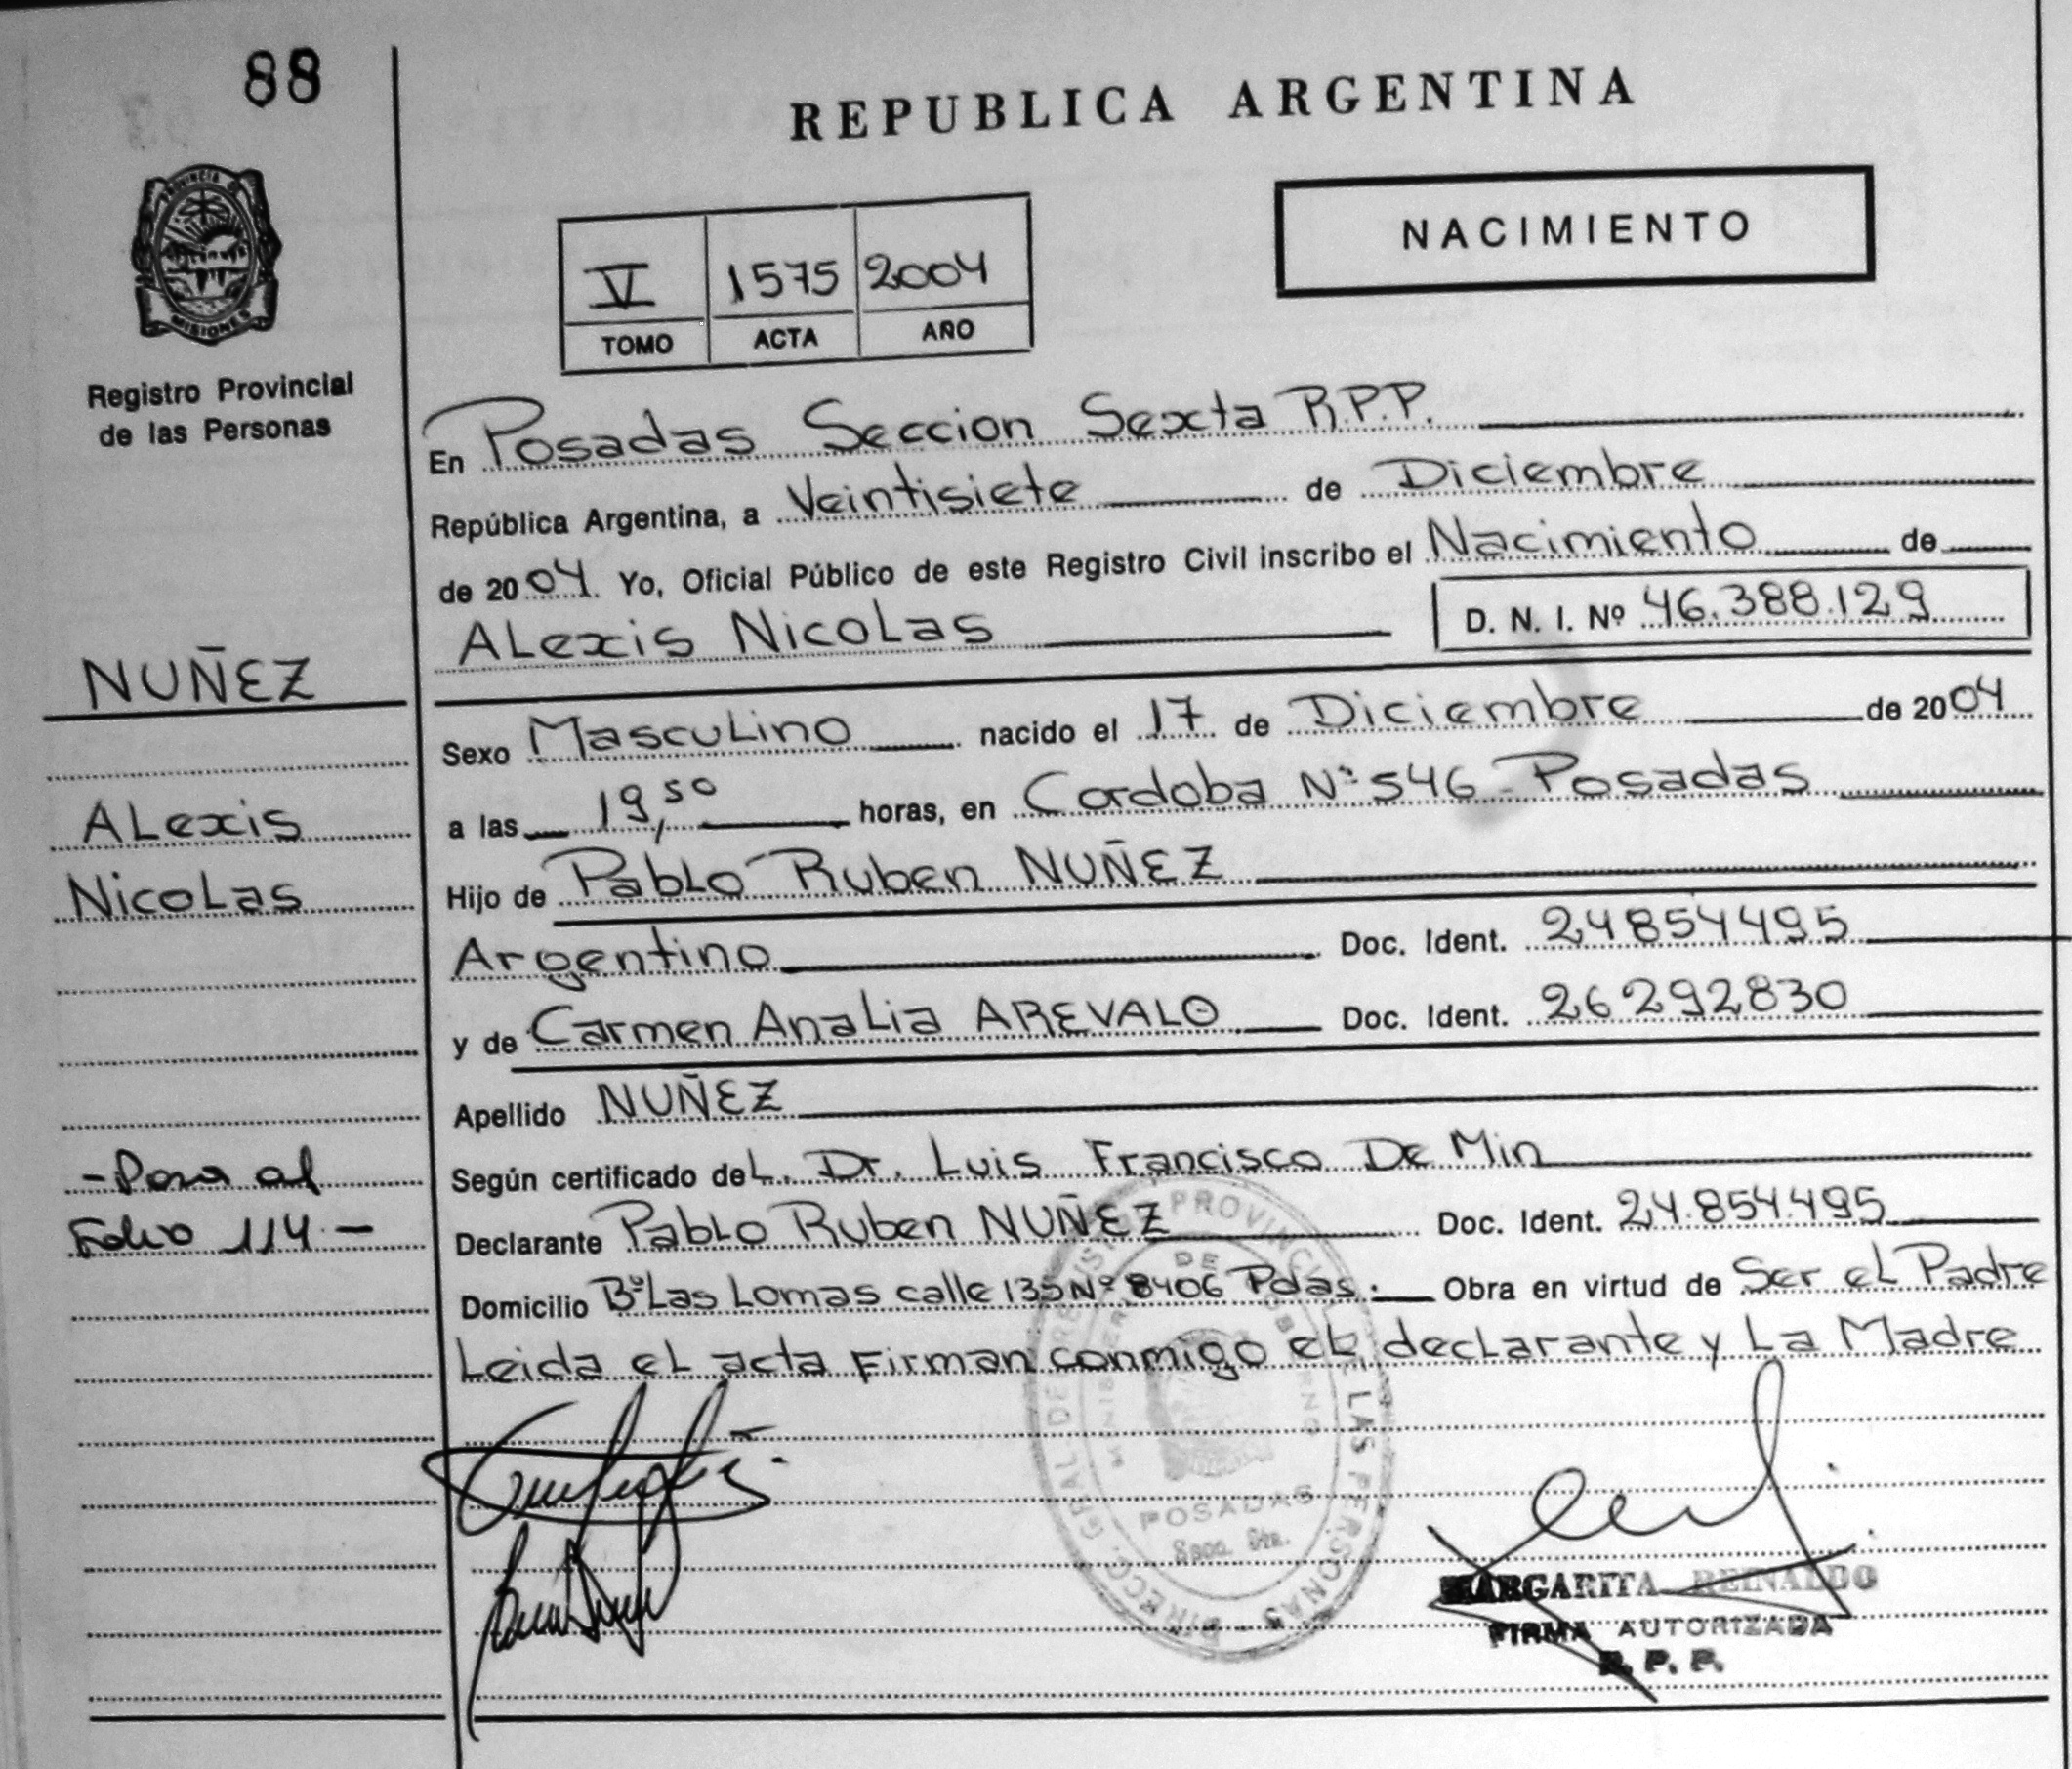 88
REPUBLICA ARGENTINA
PROVINCIA D
MISIONES
Registro Provincial
de las Personas
NACIMIENTO
V 1575 2004
TOMO ACTA AÑO
En Posadas Seccion Sexta R.P.P.
República Argentina, a Veintisiete de Diciembre
de 2004. Yo, Oficial Público de este Registro Civil inscribo el Nacimiento de
ALexis NicoLas D. N. I. Nº 46.388.129
NUÑEZ
ALexis
NicoLas
Sexo MascuLino nacido el 17 de Diciembre de 2004
a las 19,50 horas, en Cordoba Nº 546 - Posadas
Hijo de PabLo Ruben NUÑEZ
Argentino Doc. Ident. 24854495
y de Carmen AnaLia AREVALO Doc. Ident. 26292830
Apellido NUÑEZ
Según certificado deL. Dr. Luis Francisco De Min
Declarante PabLo Ruben NUÑEZ Doc. Ident. 24.854.495
Domicilio Bº Las Lomas calle 135 Nº 8406 Pdas. Obra en virtud de Ser eL Padre
Leida eL acta Firman conmigo eL declarante y La Madre
- Pasa al
Folio 114 -
DIRECC. GRAL DE REGISTRO PROVINCIAL DE LAS PERSONAS
MINISTERIO DE GOBIERNO
POSADAS
Secc. 6ta.
MARGARITA REINALDO
FIRMA AUTORIZADA
R. P. P.